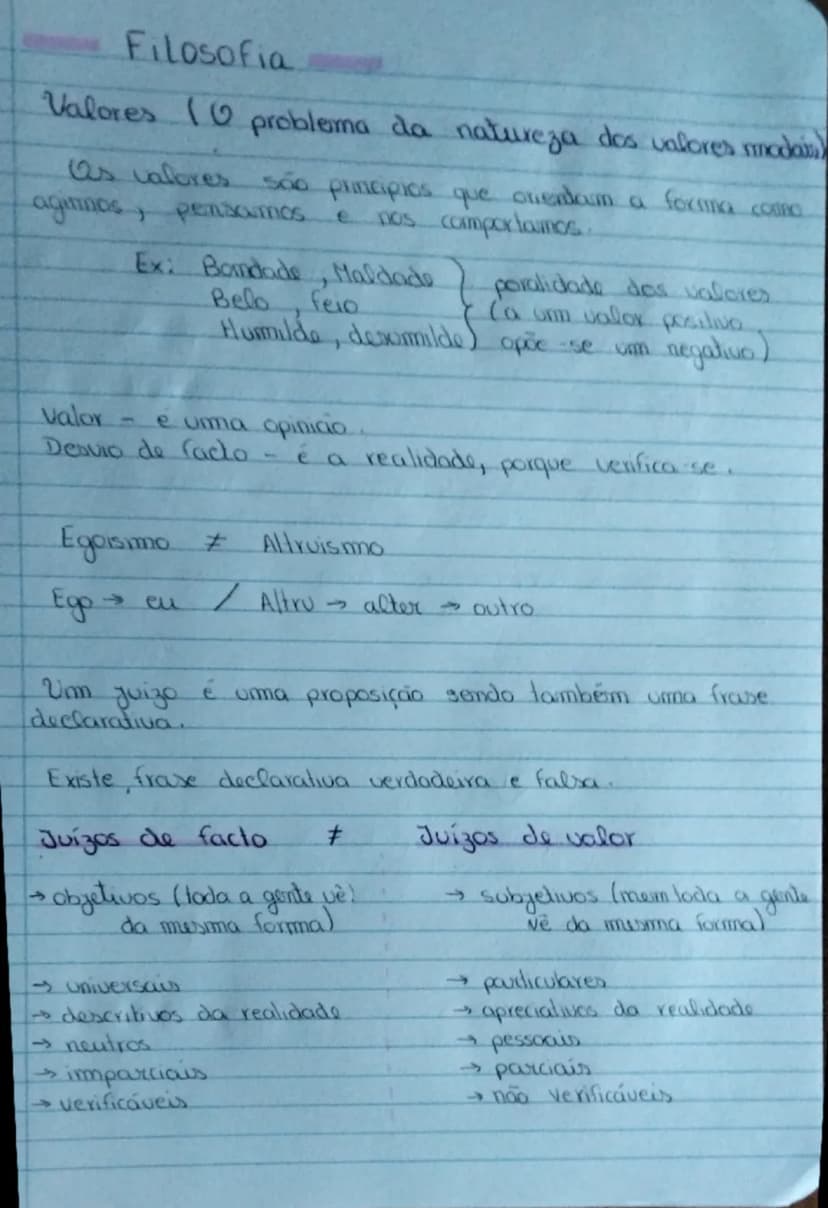 Filosofia
Valores (O problema da natureza dos valores morais)
Os valores são princípios que orientam a forma como
agimos, pensamos e nos comportamos.
Ex: Bondade, Maldade } poralidade dos valores
Belo, feio (a um valor positivo
Humilde, desumilde) opõe-se um negativo)
Valor - é uma opinião.
de facto - é a realidade, porque verifica-se.
Egoismo ≠ Altruismo
Ego → eu / Altru → alter → outro
Um juizo é uma proposição sendo também uma frase
declarativa.
Existe, frase declarativa verdadeira e falsa.
Juízos de facto ≠ Juízos de valor
→ objetivos (toda a gente vê → subjetivos (nem toda a gente
da mesma forma) vê da mesma forma)
→ universais → particulares
→ descritivos da realidade → apreciativos da realidade
→ neutros → pessoais
→ imparciais → parciais
→ verificáveis → não verificáveis